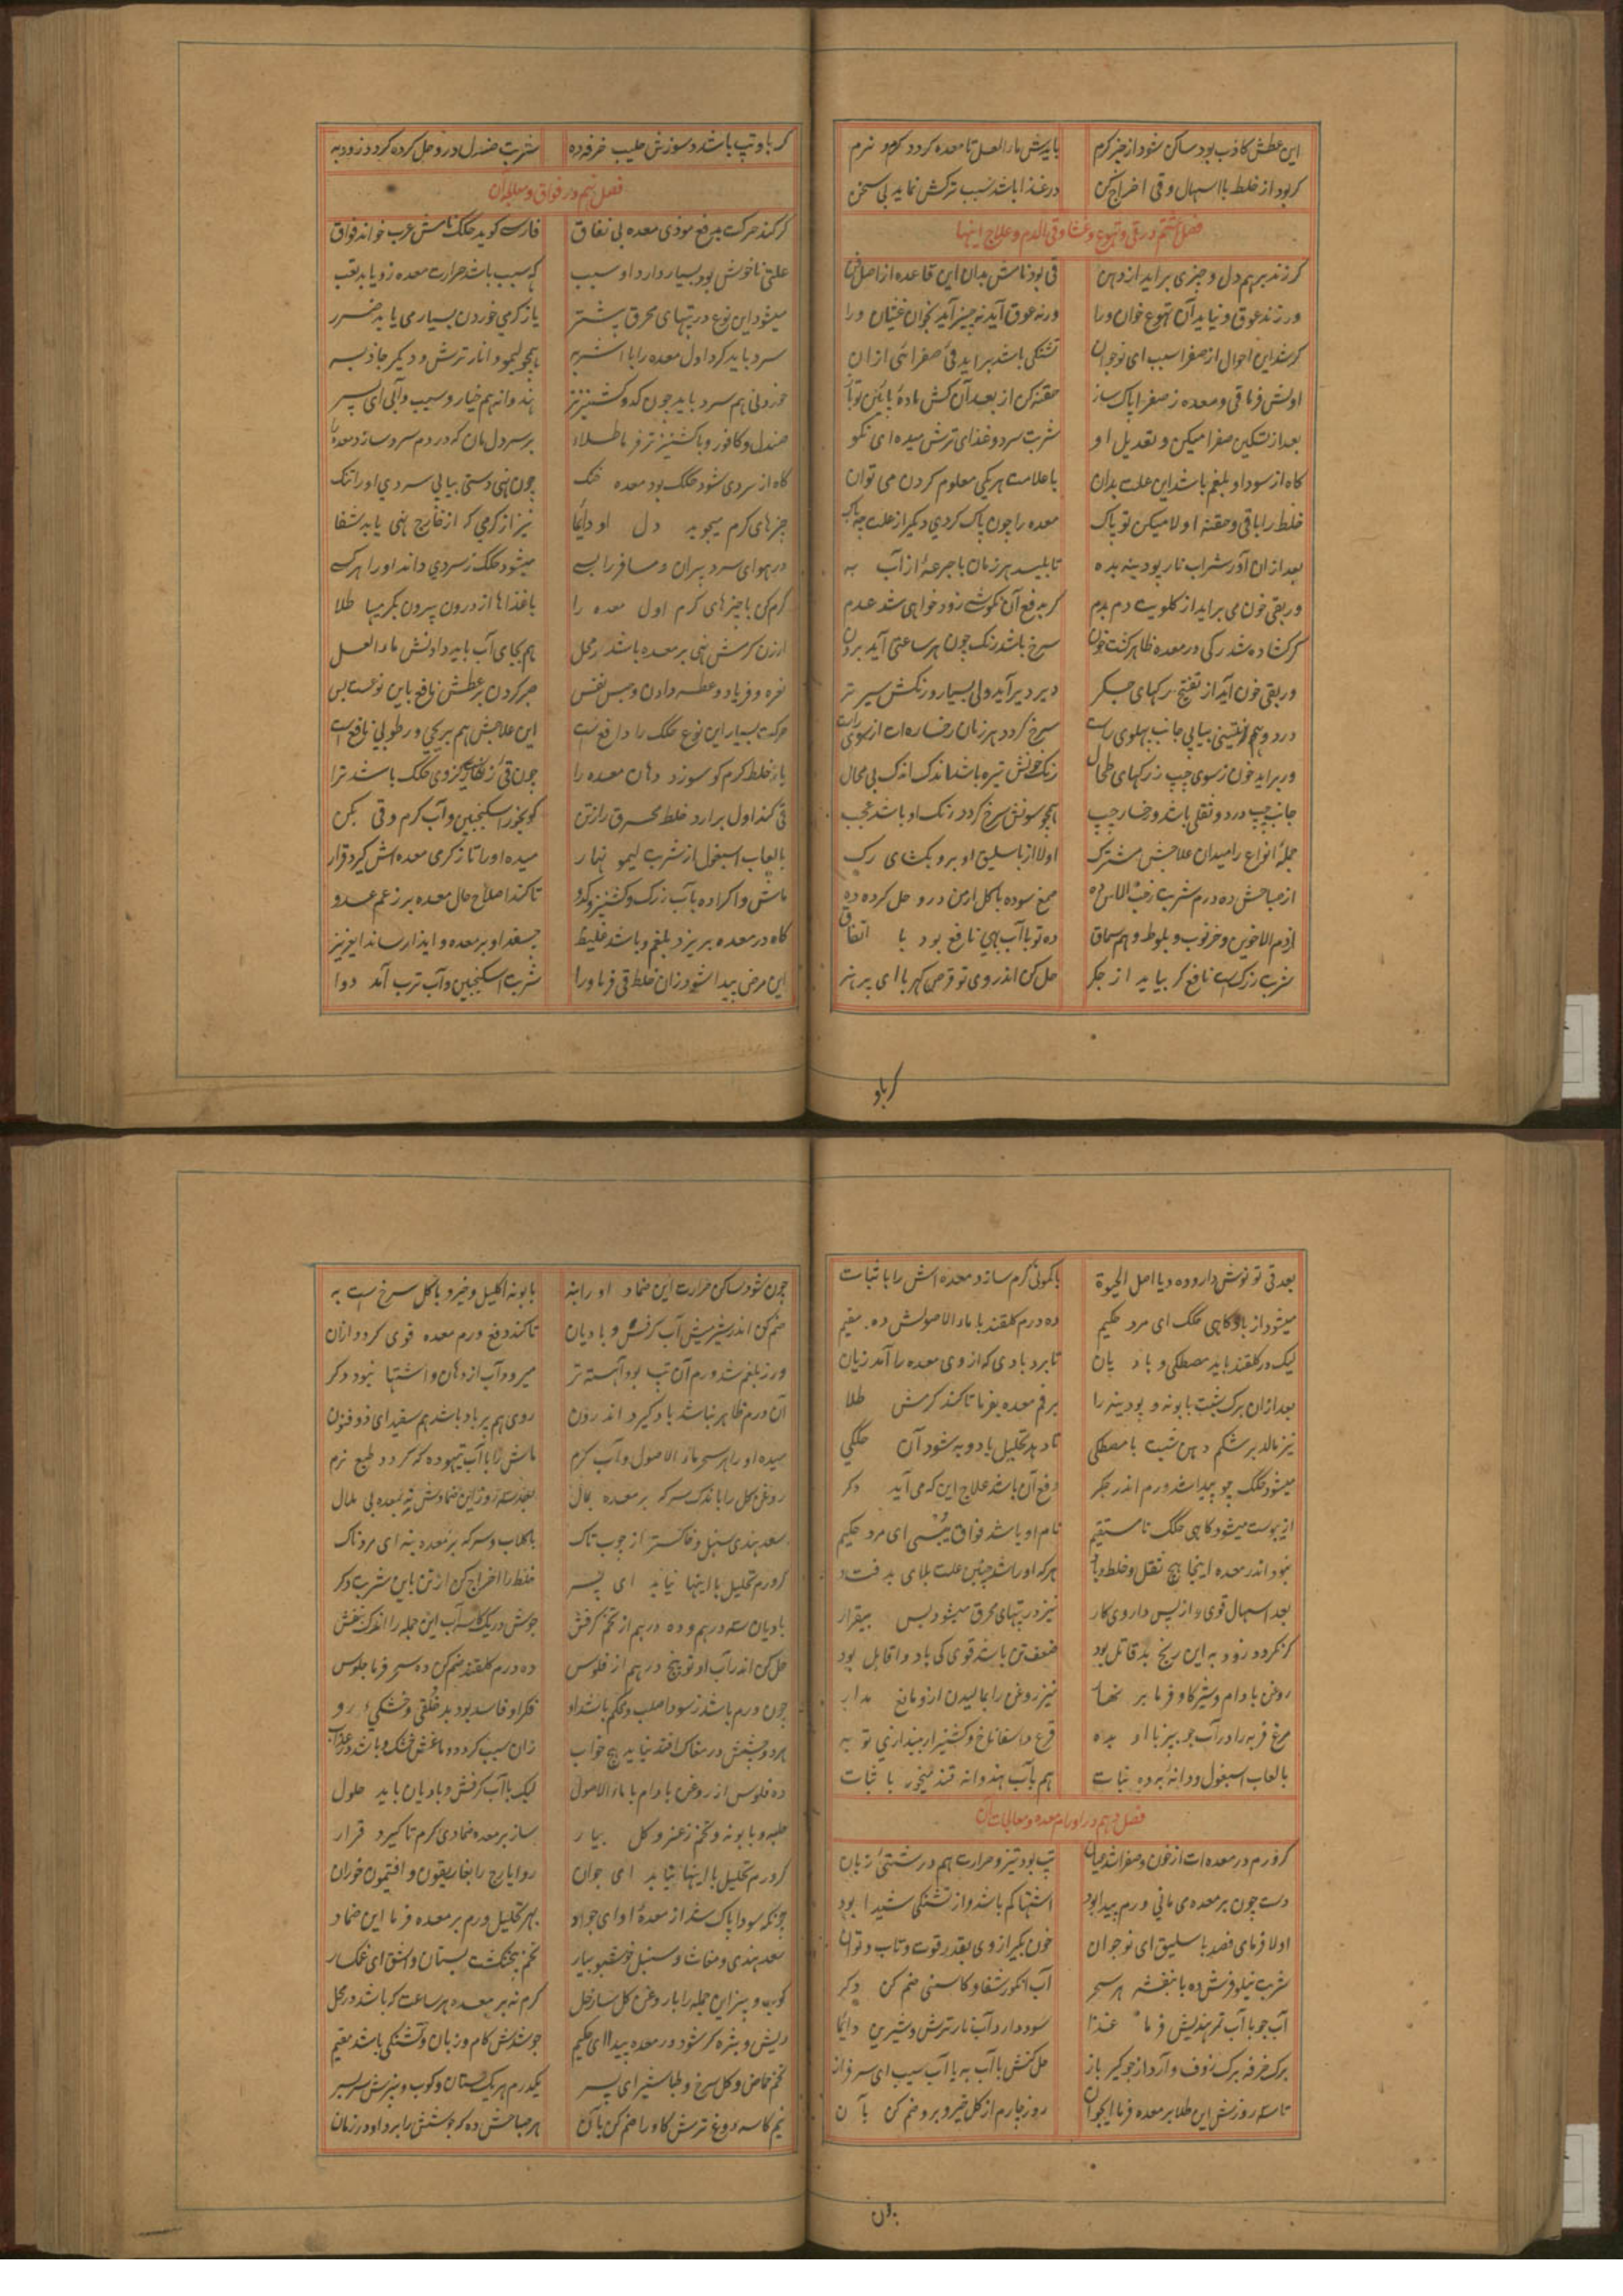 این عطش کاذب بود ساکن شود از چیز گرم بایدش ماء العسل تا معده گردد گرم و نرم
گر بود از خلط با اسهال و قی اخراج کن در غذا باشد سبب ترکش نماید بی سخن
فصل هشتم در قی و تهوع و غشا و قی الدم و علاج اینها
گر زند برهم دل و چیزی براید از دهن قی بود نامش بدان این قاعده از اصل فن
ور زند عوق و نیاید آن تهوع خوان ورا ورنه عوق آید نه چیز آید بخوان غثیان ورا
گر شد این احوال از صفرا سبب ای نوجوان تشنگی باشد براید قی صفرائی ازان
اولش فرما قی و معده ز صفرا پاک ساز حقنه کن از بعد آن کش ماده پائین
بعد از تسکین صفرا میکن و تعدیل او شربت سرد و غذای ترش میده ای نکو
گاه از سودا و بلغم باشد این علت بدان با علامت هر یکی معلوم کردن می توان
خلط را با قی و حقنه اولا میکن تو پاک معده را چون پاک کردی دیگر از علت چه باک
بعد ازان آور شراب نار پودینه بده تا بلیسد هر زمان با جرعهٔ از آب به
ور بقی خون می براید از گلویت دم بدم گر بدفع آن نکوشی زود خواهی شد عدم
گر گشاده شد رگی در معده ظاهر گشت خون سرخ باشد رنگ چون هر ساعتی آید برون
ور بقی خون آید از تفتیح رگهای جگر دیر دیر آید ولی بسیار و رنگش سیر تر
درد و هم بینی بیابی جانب پهلوی راست سرخ گردد هر زمان رخساره ات از سوی راست
ور براید خون ز سوی چپ ز رگهای طحال رنگ خونش تیره باشد اندک اندک بی مجال
جانب چپ درد و ثقلی باشد و رخسار چپ همچو سوسن سرخ گردد رنگ او باشد عجب
جملهٔ انواع را میدان علاجش مشترک اولا از باسلیق او برو بگشای رگ
از صباحش ده درم شربت ز حب الاس ده صمغ سوده با گل ارمن درو حل کرده ده
از دم الاخوین و خرنوب و بلوط و هم سماق ده تو با آب بهی نافع بود با اتفاق
شربت زرک است نافع گر بیاید از جگر حل کن اندر وی تو قرص کهربا ای پر هنر
گر باو
گر باو تپ باشد و سوزش حلیب خرفه ده شربت صندل درو حل کرده گردد زود به
فصل نهم در فواق و معالجه آن
گر کند حرکت بدفع موذی معده بی نفاق فارسی گوید هکک نامش عرب خواند فواق
علتی ناخوش بود بسیار دارد او سبب که سبب باشد حرارت معده زو یابد تعب
میشود این نوع در تبهای محرق بیشتر یا ز گرمی خوردن بسیار می یابد ضرر
سرد باید کرد اول معده را با اشربه همچو لیمو و انار ترش و دیگر جاذبه
خوردنی هم سرد باید چون کدو کشنیز تر هندوانه هم خیار و سیب و آبی ای پسر
صندل و کافور و با کشنیز تر فرما طلا بر سر دل مان که در دم سرد سازد معده را
گاه از سردی شود هکک بود معده خنک چون نهی دستی بیابی سردی او را تنک
چیزهای گرم میجوید دل او دایما نیز از گرمی که از خارج نهی یابد شفا
در هوای سرد پیران و مسافر را بسے میشود هکک ز سردی داند او را هر کسے
گرم کن با چیزهای گرم اول معده را با غذاها از درون بیرون بگرمیها طلا
ارزن گرمش نهی بر معده باشد در محل هم بجای آب باید دادنش ماء العسل
نعره و فریاد و عطسه دادن و حبس نفس صبر کردن بر عطش نافع باین نوعست بس
حرکت بسیار این نوع هکک را دافع است این علاجش هم بریحی و رطوبی نافع است
یا ز خلط گرم کو سوزد دهان معده را چون قی زنگار کز وی هکک باشد ترا
قی کند اول برارد خلط محرق را ز تن گو بخور اسکنجبین و آب گرم و قی بکن
با لعاب اسبغول از شربت لیمو نهار میده او را تا ز گرمی معده اش گیرد قرار
ماش وا کرده بآب زرک و کشنیز و کدو تا کند اصلاح حال معده بر زعم عدو
گاه در معده بریزد بلغم و باشد غلیظ چسفد او بر معده و ایذا رساند ای عزیز
این مرض پیدا شود زان خلط قی فرما ورا شربت اسکنجبین و آب ترب آمد دوا
بعد قی تو نوش دارو ده و یا اصل الحیوة با کمونی گرم سازد معده اش را با ثبات
میشود از باد گاهی هکک ای مرد حکیم ده درم گلقند با ماء الاصولش ده مقیم
لیک در گلقند باید مصطکی و بادیان تا برد بادی که از وی معده را آمد زیان
بعد ازان برگ شبت بابونه و پودینه را بر فم معده بفرما تا کند گرمش طلا
نیز مالد بر شکم دهن شبت با مصطکی تا دهد تحلیل باد و به شود آن هککی
میشود هکک چو پیدا شد ورم اندر جگر دفع آن باشد علاج این که می آید دگر
از یبوست میشود گاهی هکک نا مستقیم نام او باشد فواق یبسی ای مرد حکیم
نبود اندر معده اینجا هیچ ثقل و خلط و باد هرکه او را شد چنین علت بلای بد فتاد
بعد اسهال قوی و از پس داروی کار نیز در تبهای محرق میشود بس بیقرار
گر نگردد زود به این رنج بد قاتل بود ضعف تن باشد قوی کی باد وا قابل بود
روغن بادام و شیر گاو فرما بر نهار نیز روغن را بمالیدن ازو مانع مدار
مرغ فربه را در آب جو بپز با او بده قرع و اسفاناخ و کشنیز ار بیندازی تو به
با لعاب اسبغول و دانهٔ به ده نبات هم بآب هندوانه قند میخور با ثبات
فصل دهم در اورام معده و معالجات آن
گر ورم در معده ات از خون و صفرا شد عیان تپ بود تیز و حرارت هم درشتی زبان
دست چون بر معده می مانی ورم پیدا بود اشتها کم باشد و از تشنگی شیدا بود
اولا فرمای فصد باسلیق ای نوجوان خون بگیر از وی بقدر قوت و تاب و توان
شربت نیلوفرش ده با بنفشه هر سحر آب انگور شفا و کاسنی ضم کن دگر
آب جو با آب تمر هندیش فرما غذا سود دارد آب نار ترش و شیرین دایما
برگ خرفه برگ زوف و آرد از جو گیر باز حل کنش با آب به یا آب سیب ای سرفراز
تا سه روزش این طلا بر معده فرما ایجوان روز چارم از گل خیرو برو ضم کن بآن
چون شود ساکن حرارت این ضماد او را بنه بابونه اکلیل و خیرو با گل سرخ است به
ضم کن اندر شربتش آب کرفس و بادیان تا کند دفع ورم معده قوی گردد ازان
ور ز بلغم شد ورم آن تپ بود آهسته تر میرود آب از دهان و اشتها نبود دگر
آن ورم ظاهر نباشد باد گیرد اندرون روی هم پر باد باشد هم سفید ای ذوفنون
میده او را هر سحر ماء الاصول و آب گرم ماش را با آب تیهو ده که گردد طبع نرم
روغن گل را باندک سرکه بر معده بمال بعد سه روز این ضمادش نه بمعده بی ملال
سعد هندی سنبل و خاکستر از چوب تاک با گلاب و سرکه بر معده بنه ای مرد پاک
گر ورم تحلیل با اینها نیابد ای پسر خلط را اخراج کن از تن باین شربت دگر
بادیان سه درهم و ده درهم از تخم کرفس جوش در یک کاسه آب این جمله را
حل کن اندر آب او تو پنج درهم از فلوس ده درم گلقند ضم کن ده سحر فرما جلوس
چون ورم باشد ز سودا صلب و محکم باشد او فکر او فاسد بود بد خلقی و خشکی رو
هر دو چشمش در مغاک افتد نیاید هیچ خواب زان سبب گردد دماغش خشک و باشد در عذاب
ده فلوس از روغن بادام با ماء الاصول لیک با آب کرفس و بادیان باید حلول
حلبه و بابونه و تخم زغیر و گل بیار ساز بر معده ضمادی گرم تا گیرد قرار
گر ورم تحلیل با اینها نیابد ای جوان رو ایارج را بغاریقون و افتیمون خوران
چونکه سودا پاک شد از معدهٔ او ای جواد بهر تحلیل ورم بر معده فرما این ضماد
سعد هندی و مغاث و سنبل خوشبو بیار تخم پنجنگشت بستان و اشق ای غمگسار
کوب و بیز این جمله را با روغن گل ساز حل گرم نه بر معده هر ساعت که باشد در محل
ریش و بثره گر شود در معده پیدا ای حکیم جوشدش کام و زبان و تشنگی باشد مقیم
تخم حماض و گل سرخ و طباشیر ای پسر یکدرم هر یک بستان و کوب و بیزش سر بسر
نیم کاسه دوغ ترش گاو را ضم کن بآن هر صباحش ده که جوشش را برد او در زمان